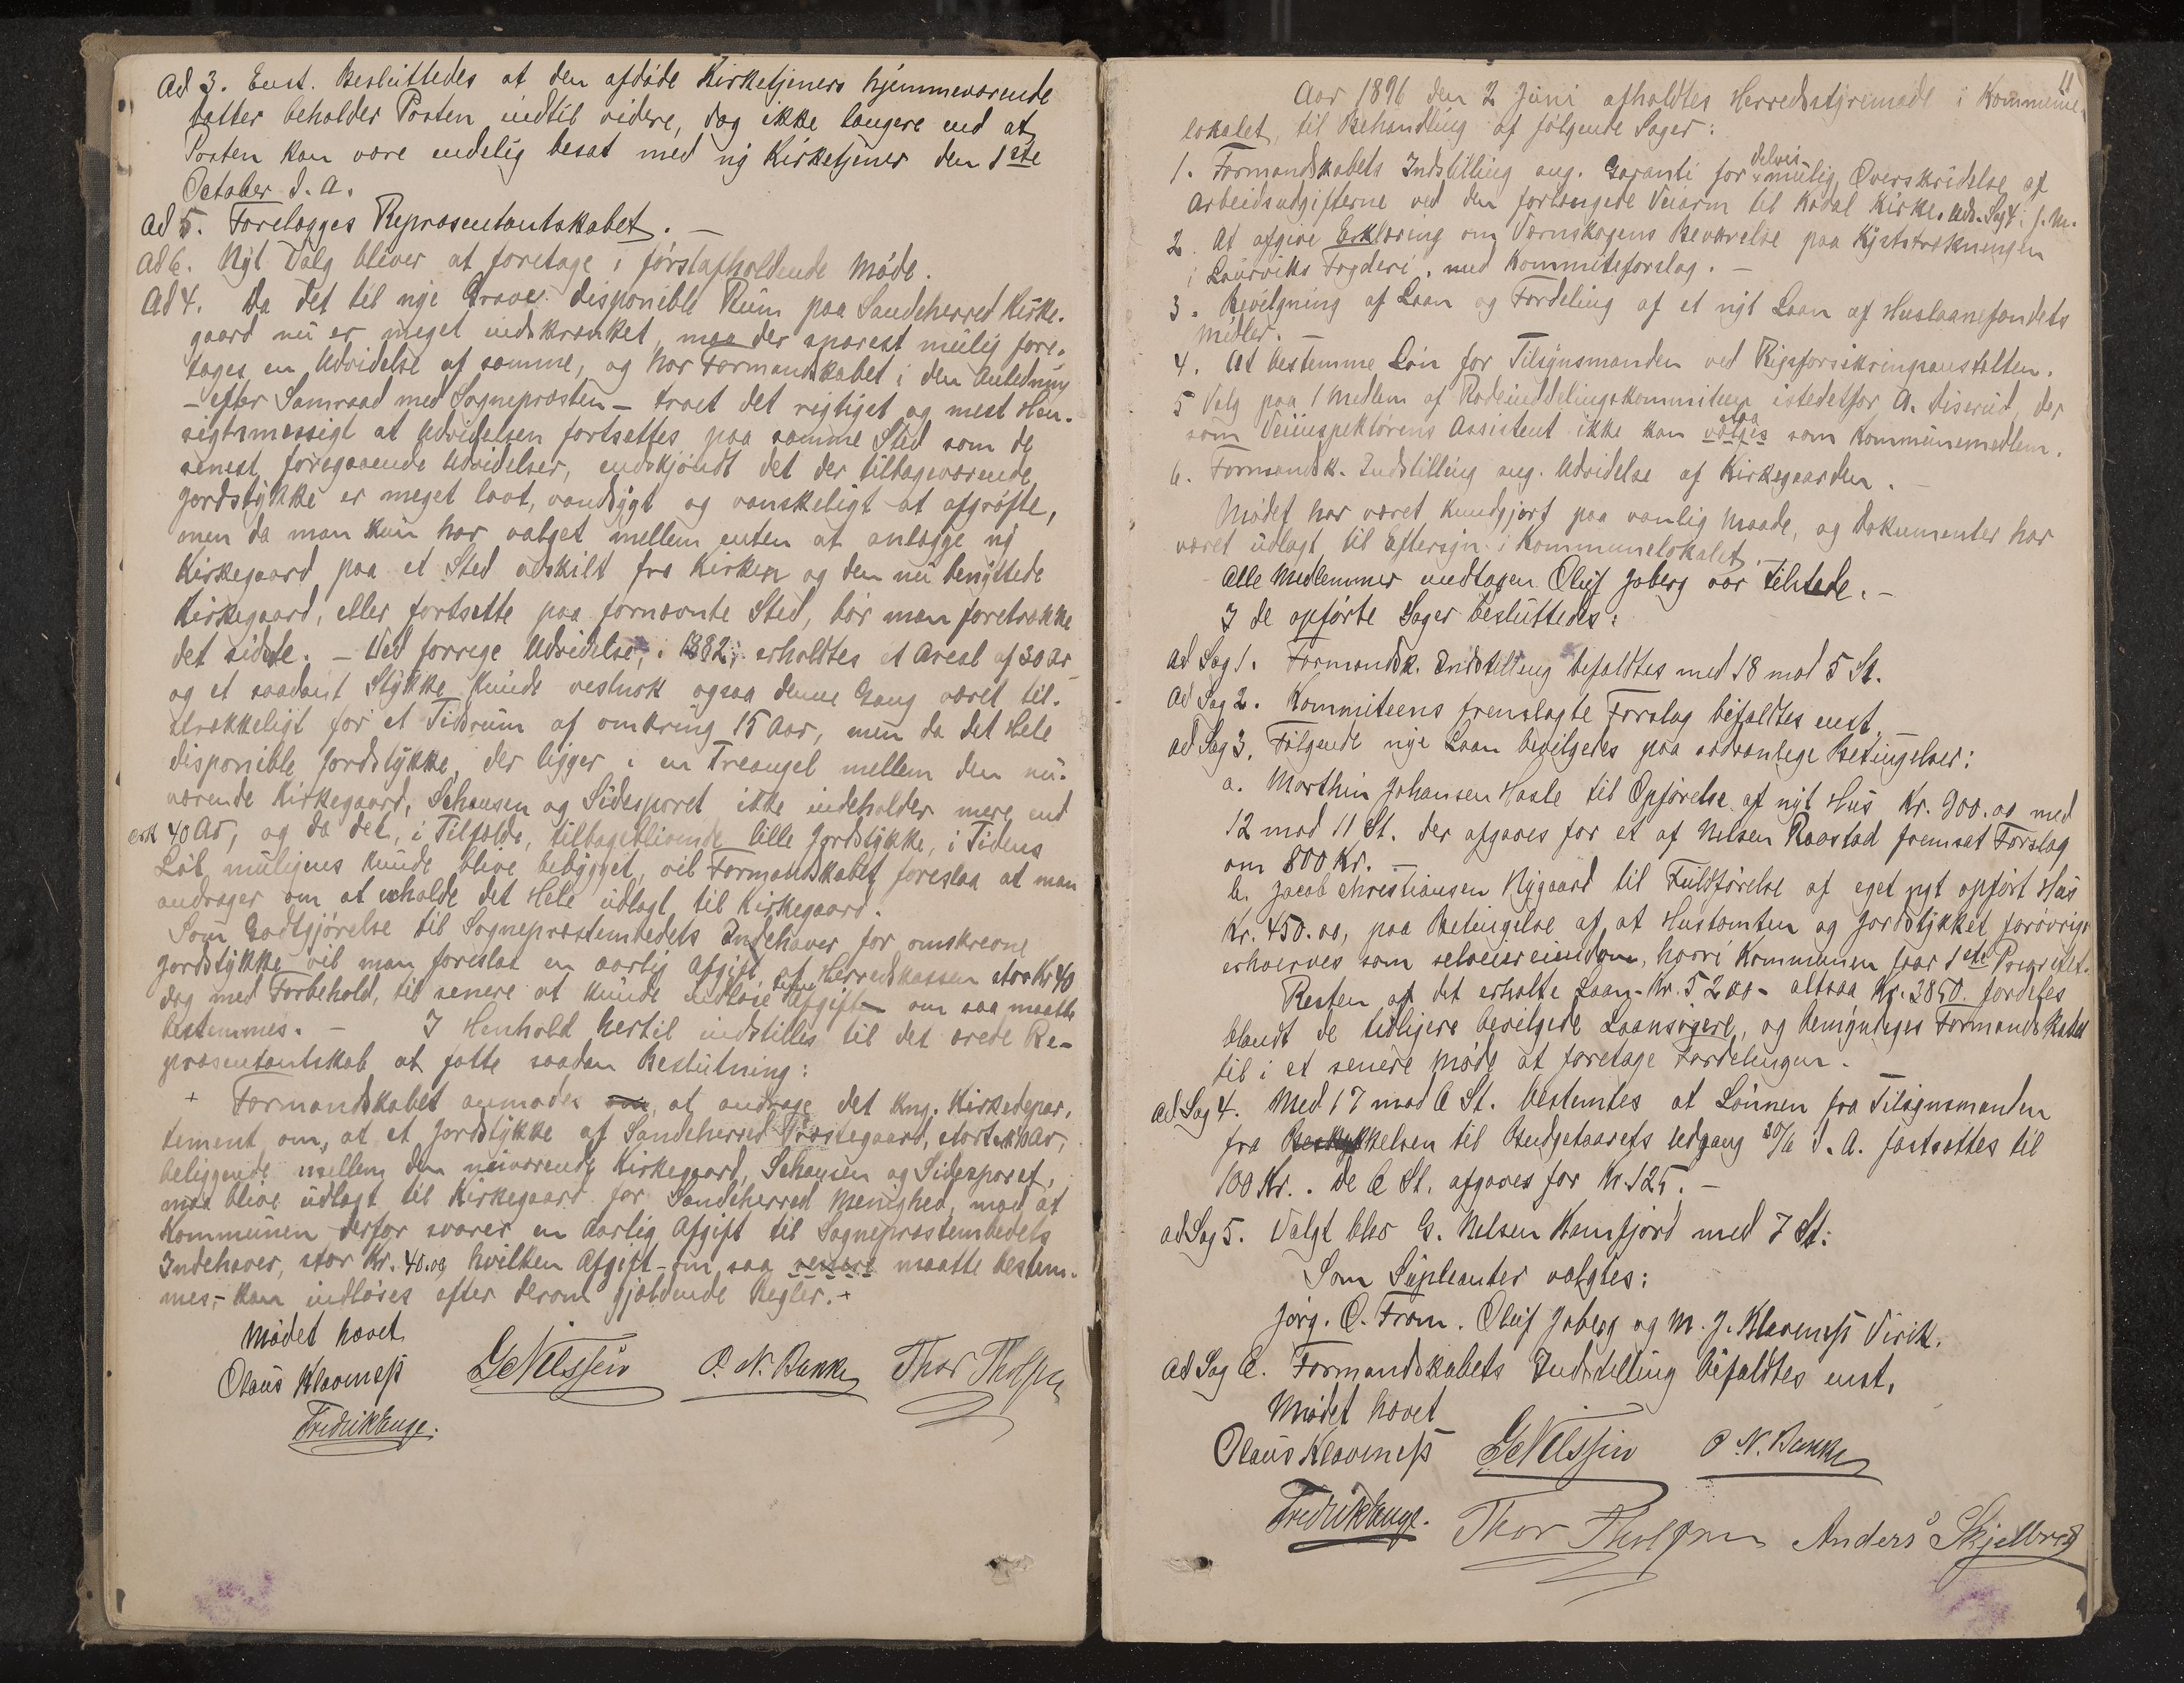 Ad 3. Enst. Besluttedes at den afdøde Kirketjeners hjemmeværende
Datter beholder Posten indtil videre, dog ikke længere end at
Posten kan være endelig besat med ny Kirketjener den 1ste
October d. A.
Ad 5. Forelægges Repræsentantskabet. —
Ad 6. Nyt Valg bliver at foretage i førstafholdende Møde.
Ad 4. Da det til nye Grave disponible Rum paa Sandeherred Kirke-
gaard nu er meget indskrænket, maa der snarest mulig fore-
tages en Udvidelse af samme, og har Formandskabet i den Anledning
– efter Samraad med Sognepræsten – troet det rigtigst og mest Hen-
sigtsmæssigt at Udvidelsen fortsættes paa samme Sted som de
senest foregaaende Udvidelser, endskjøndt det der tilbageværende
Jordstykke er meget lavt, vandsygt og vanskeligt at afgrøfte,
men da man kun har valget mellem enten at anlægge ny
Kirkegaard paa et Sted adskilt fra Kirken og den nu benyttede
Kirkegaard, eller fortsætte paa fornævnte Sted, bør man foretrække
det sidste. – Ved forrige Udvidelse, i 1882, erholdtes et Areal af 30 Ar
og et saadant Stykke kunde vestnok ogsaa denne Gang været til-
strækkeligt for et Tidsrum af omkring 15 Aar, men da det Hele
disponible Jordstykke, der ligger i en Treangel mellem den nu-
værende Kirkegaard, Chausen og Sidesporet ikke indeholder mere end
40 Ar, og da det, i Tilfælde, tilbageblivende lille Jordstykke, i Tidens
Løb, muligens kunde blive bebygget, vil Formandskabet foreslaa at man
andrager om at erholde det Hele udlagt til Kirkegaard.
Som Godtgjørelse til Sognepræstembedets Indehaver for omskrevne
Jordstykke vil man foreslaa en aarlig Afgift af Herredskassen stor Kr 40
dog med Forbehold, til senere at kunde indløse Afgiften om saa maatte
bestemmes. – I Henhold hertil indstilles til det ærede Re-
præsentantskab at fatte saadan Beslutning:
+ Formandskabet anmodes om, at andrage det kng. Kirkedepar-
tement om, at et Jordstykke af Sandeherred Præstegaard, stort 40 Ar,
beliggende mellem den nuværende Kirkegaard, Chausen og Sidesporet,
maa blive udlagt til Kirkegaard for Sandeherred Menighed, mod at
Kommunen derfor svarer en aarlig Afgift til Sognepræstembedets
Indehaver, stor Kr. 40.00, hvilken Afgift – om saa senere maatte bestem-
mes, – kan indløses efter derom gjældende Regler. +
Mødet hævet
Olaus Klaveness G Nilssen O. N. Bakke Thor Tholfsen
Fredrik Lange.
11
Aar 1896 den 2 Juni afholdtes Herredsstyremøde i Kommune-
lokalet, til Behandling af følgende Sager:
1. Formandskabets Indstilling ang. Garanti for delvis mulig Overskridelse af
Arbeidsudgifterne ved den forlængede Veiarm til Kodal Kirke. Uds. Sag 4. f. M.
2. At afgive Erklæring om Værnskogens Bevarelse paa Kyststrækningen
i Laurviks Fogderi, med Kommiteforslag. –
3. Bevilgning af Laan og Fordeling af et nyt Laan af Huslaanefondets
Midler. –
4. At bestemme Løn for Tilsynsmanden ved Rigsforsikringsanstalten.
5 Valg paa 1 Medlem af Rodeinddelingskommiteen istedetfor A. Liserud, der
som Veiinspektørens Assistent ikke kan vælges som Kommunemedlem.
6. Formandsk. Indstilling ang. Udvidelse af Kirkegaarden. –
Mødet har været kundgjort paa vanlig Maade, og Dokumenter har
været udlagt til Eftersyn i Kommunelokalet. –
Alle Medlemmer undtagen Oluf Joberg var tilstede. –
I de opførte Sager besluttedes:
ad Sag 1. Formandsk. Indstilling bifaldtes med 18 mod 5 St.
ad Sag 2. Kommiteens fremlagte Forslag bifaldtes enst.
ad Sag 3. Følgende nye Laan bevilgedes paa sædvanlige Betingelser:
a. Marthin Johansen Hasle til Opførelse af nyt Hus Kr. 900.00 med
12 mod 11 St. der afgaves for et af Nilsen Raastad fremsat Forslag
om 800 Kr. –
b. Jacob Christiansen Nygaard til Fuldførelse af eget nyt opført Hus
Kr. 450.00, paa Betingelse af at Hustomten og Jordstykket forøvrigt
erhverves som selveiereiendom, hvori Kommunen faar 1ste Prioritet.
Resten af det erholdte Laan – Kr. 5200 – altsaa Kr. 3850. fordeles
blandt de tidligere bevilgede Laansøgere, og bemyndiges Formandskabet
til i et senere Møde at foretage Fordelingen.
ad Sag 4. Med 17 mod 6 St. bestemtes at Lønnen fra Tilsynsmanden
fra Beskikkelsen til Budgetaarets Udgang 30/6 d. A. fastsættes til
100 Kr. . De 6 St. afgaves for Kr. 125. –
ad Sag 5. Valgt blev G. Nilsen Kamfjord med 7 St.
Som Supleanter valgtes:
Jørg. O. Fram. Oluf Joberg og M. J. Klavenæss Virik.
ad Sag 6. Formandskabets Indstilling bifaldtes enst.
Mødet hævet
Olaus Klaveness G Nilssen O N. Bakke
Fredrik Lange. Thor Tholfsen Anders Skjelbred